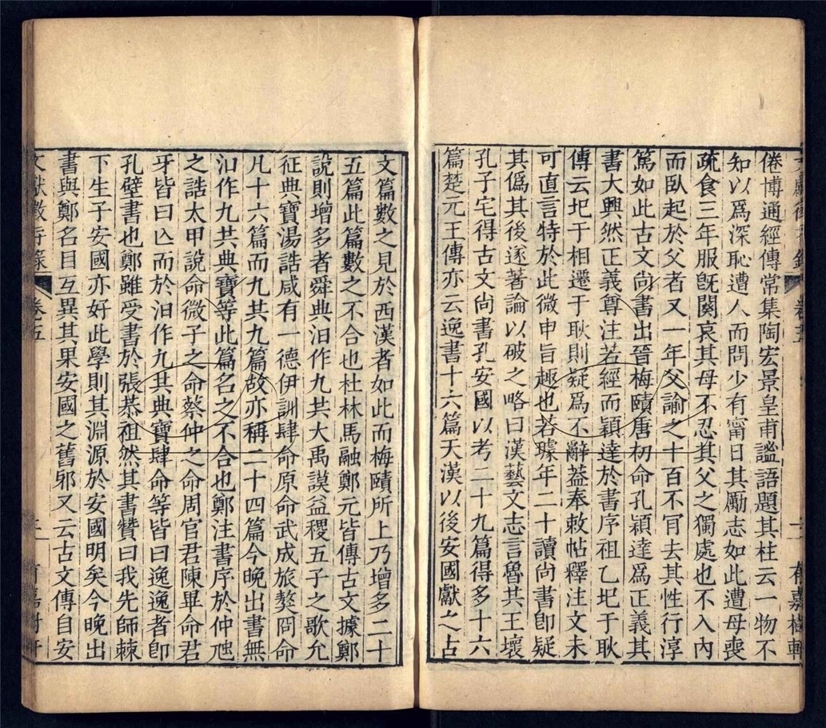 倦博通經傳常集陶宏景皇甫謐語題其柱云一物不
知以爲深恥遭人而問少有甯日其勵志如此遭母喪
疏食三年服旣闋哀其母不忍其父之獨處也不入內
而臥起於父者又一年父諭之十百不肎去其性行淳
篤如此古文尙書出晉梅賾唐初命孔穎達爲正義其
書大興然正義尊注若經而穎達於書序祖乙圯于耿
傳云圯于相遷于耿則疑爲不辭葢奉敕帖釋注文未
可直言特於此微申旨趣也若璩年二十讀尙書卽疑
其僞其後遂著論以破之略曰漢藝文志言魯共王壞
孔子宅得古文尙書孔安國以考二十九篇得多十六
篇楚元王傳亦云逸書十六篇天漢以後安國獻之古
文篇數之見於西漢者如此而梅賾所上乃增多二十
五篇此篇數之不合也杜林馬融鄭元皆傳古文據鄭
說則增多者舜典汨作九共大禹謨益稷五子之歌允
征典寶湯誥咸有一德伊訓肆命原命武成旅獒冏命
凡十六篇而九共九篇故亦稱二十四篇今晚出書無
汨作九共典寶等此篇名之不合也鄭注書序於仲虺
之誥太甲說命微子之命蔡仲之命周官君陳畢命君
牙皆曰亾而於汨作九共典寶肆命等皆曰逸逸者卽
孔壁書也鄭雖受書於張恭祖然其書贊曰我先師棘
下生子安國亦好此學則其淵源於安國明矣今晚出
書與鄭名目互異其果安國之舊邪又云古文傳自安
文獻徵存錄 卷五